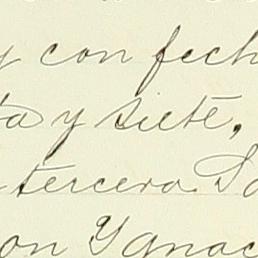 y con fech
ta y siete,
tercera Sa
on Ygnac